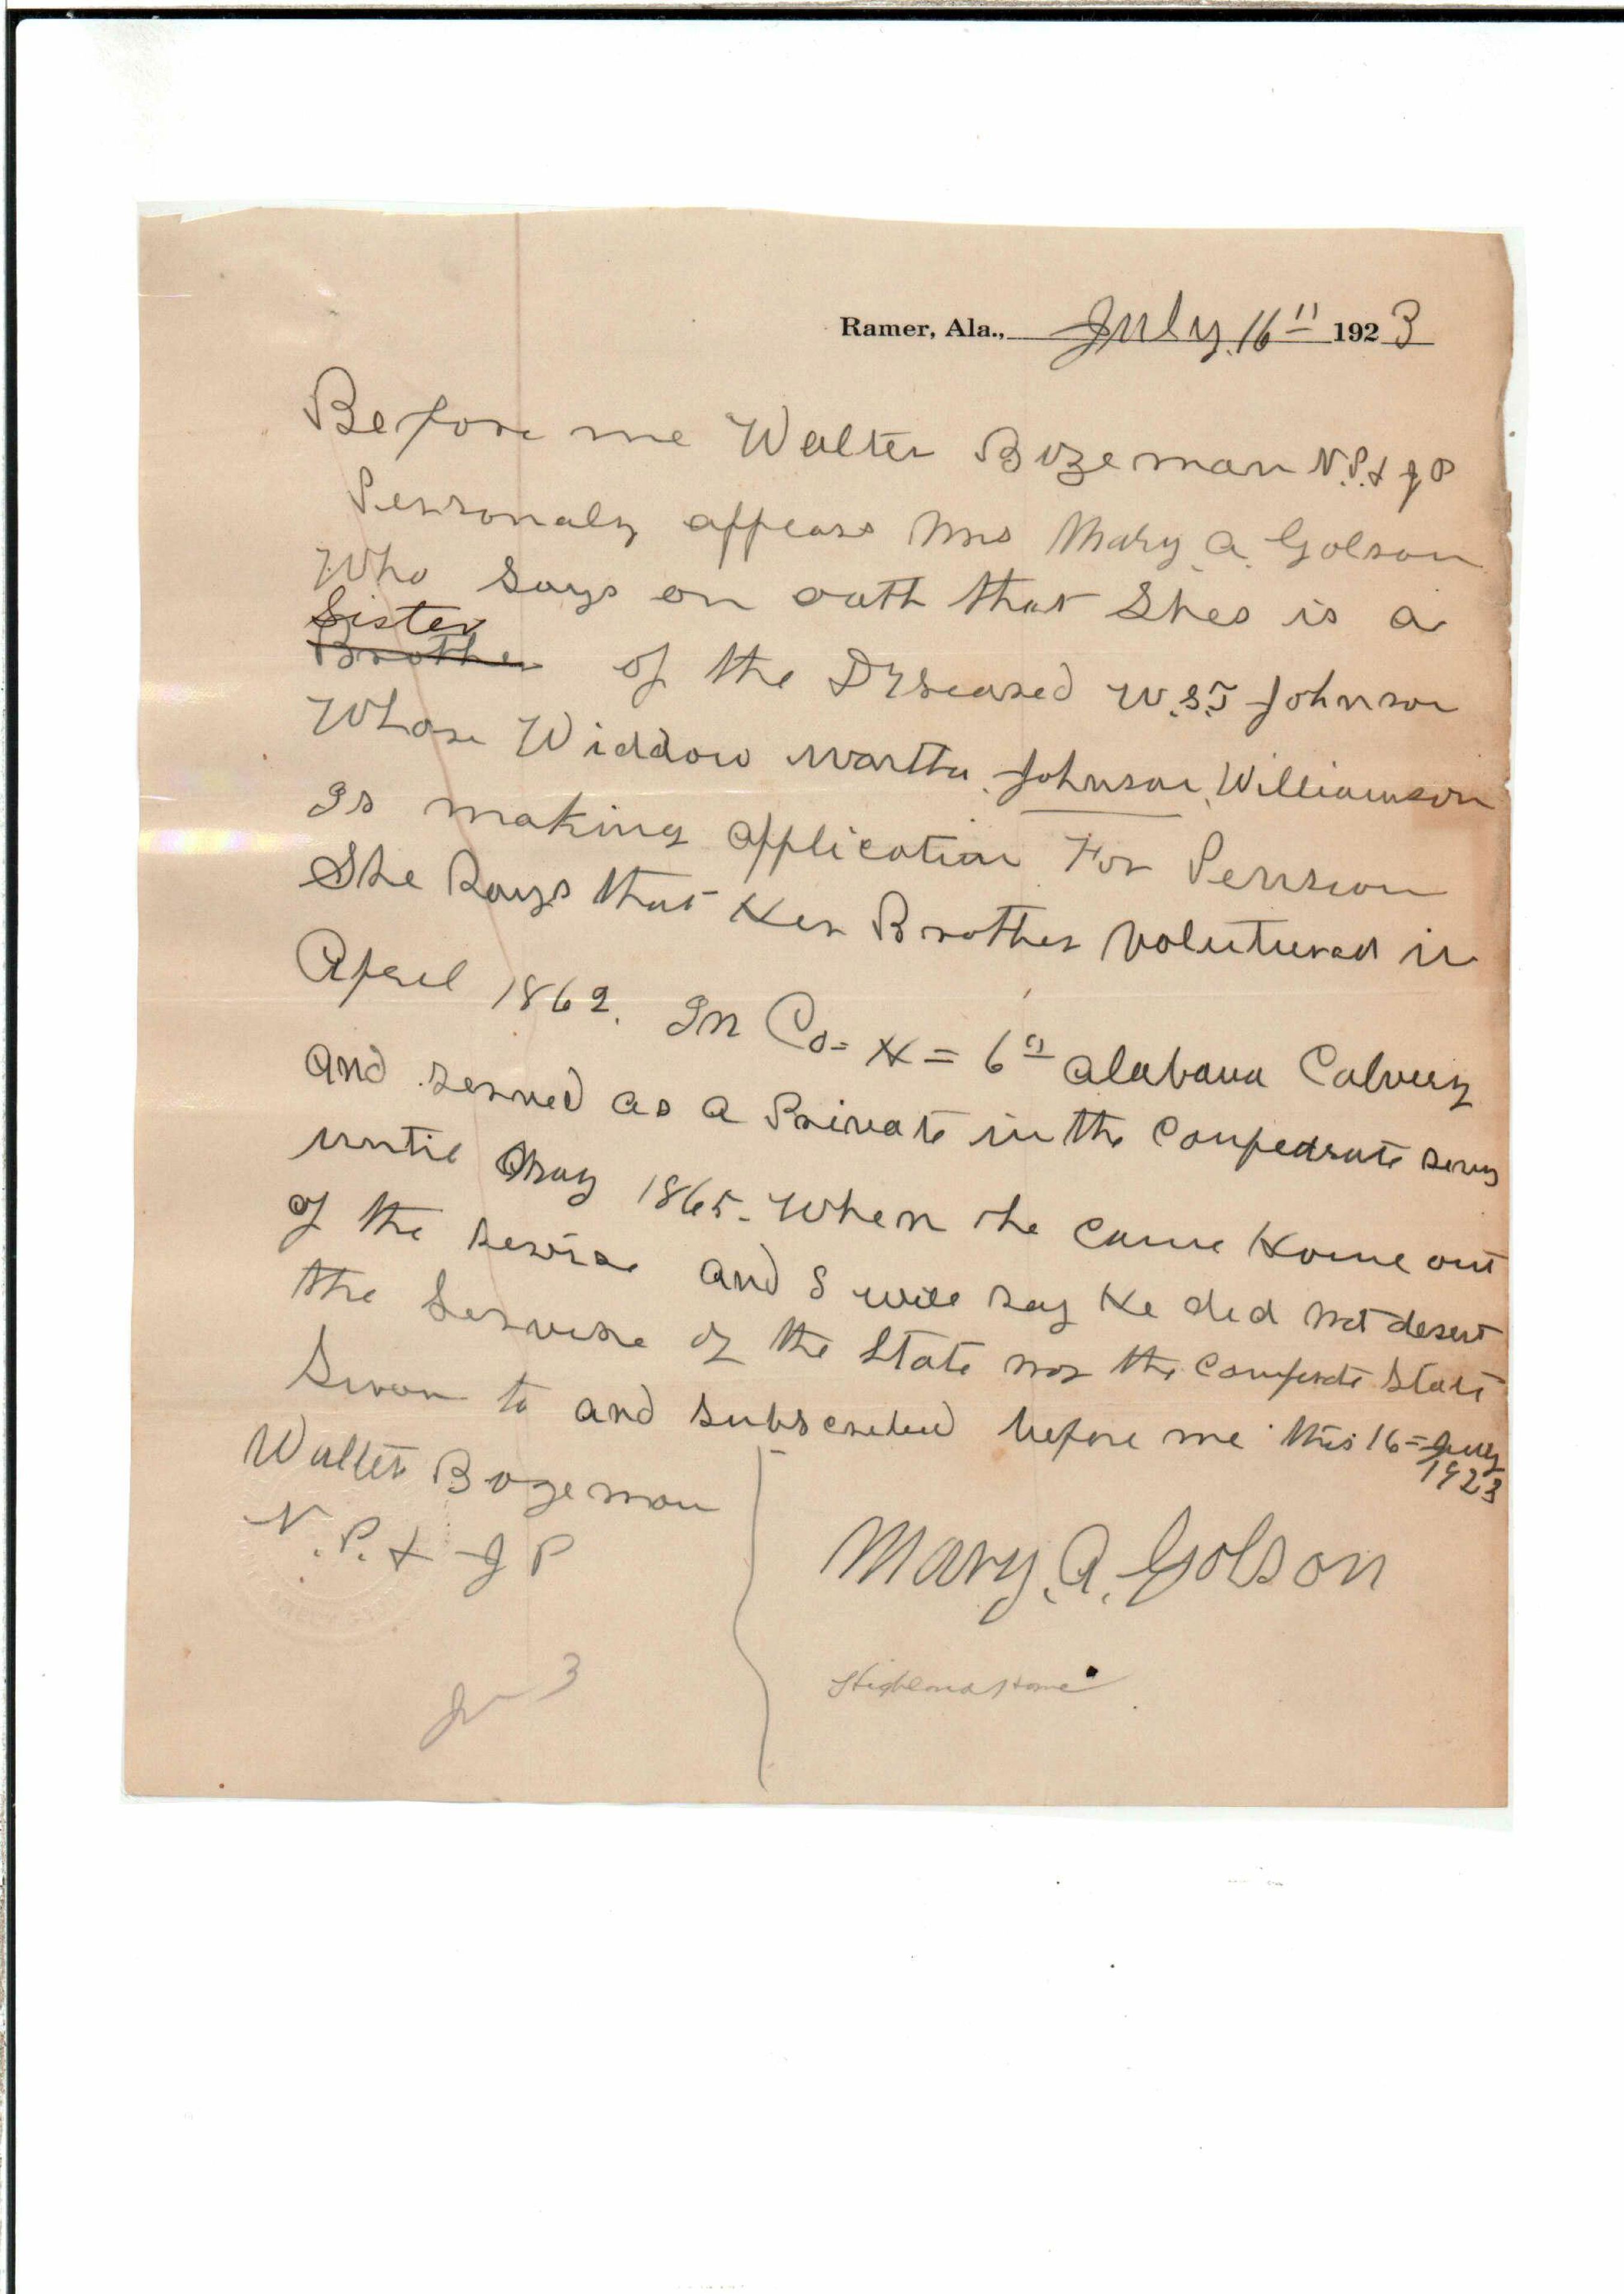 Ramer, Ala., July. 16" 1923
Before me Walter Bozeman N.P. & J P
Personaly appears Mrs Mary. A. Golson
Who Says on oath that Shes is a
Sister
Brother of the Dyseased W.S.T Johnson
Whose Widdow Martha Johnson, Williamson
Is making application For Pension
She Says that Her Brother Volutured in
April 1862. In Co = H = 6" Alabama Calvery
and served as a Private in the Confedrate
until May 1865. When he came Home out
of the and I will say He did not desert
the Service of the State nor the State
Sworn to and subscribed before me this 16 = July
1923
Walter Bozeman
N.P. & J P
Mary. A. Golson
Highland Home